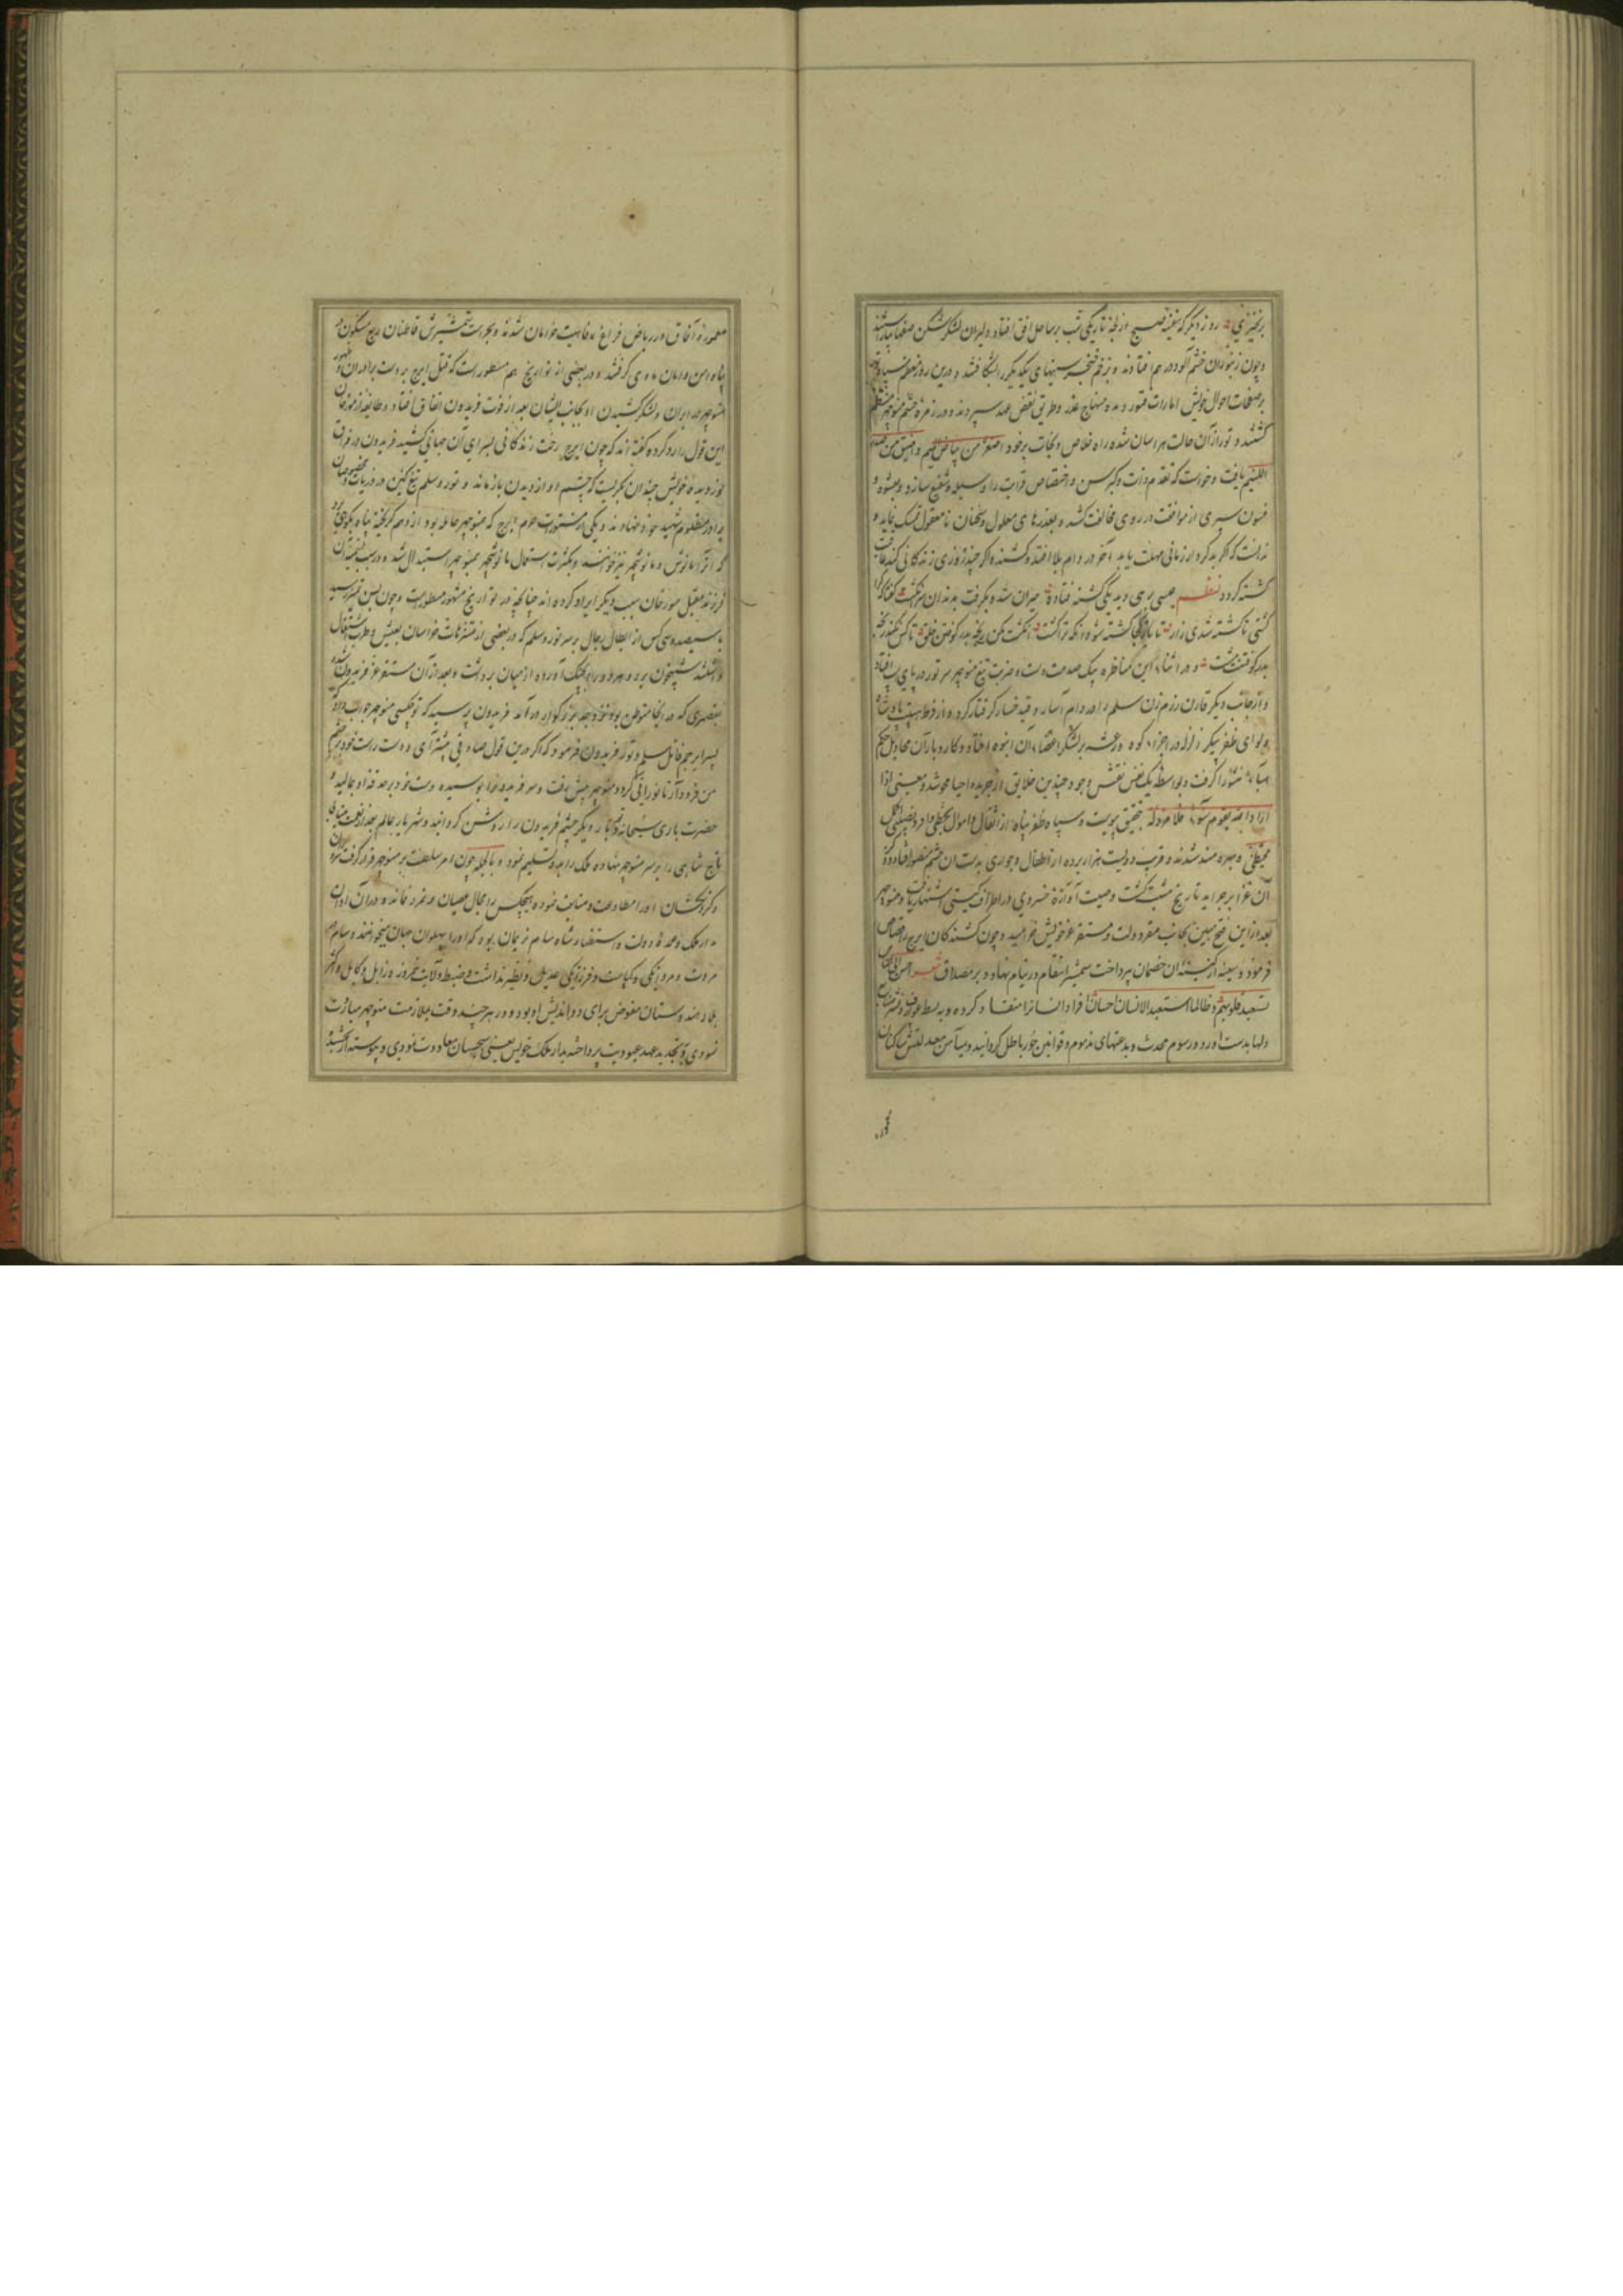 برخیزی روز دیگر که سفینه صبح از لجه تاریکی شب بر ساحل افق افتاد دلیران لشکرشکن صفها بیاراستند
و چون زنبوران خشم آلود در هم افتادند و بزخم خنجر سینهای یکدیگر را بشکافتند و درین روز معظم سپاه تور
بر صفحات احوال خویش امارات فتور دیده منهاج غدر و طریق نقض عهد سپردند و در زمره حشم منوچهر منتظم
کشتند و تور از آن حالت هراسان شده راه خلاص و نجات بر خود اصغر من بیاض المیم و اضیق من
اللئیم یافت و خواست که تقدم ذات و کبر سن و اختصاص قرابت را وسیله و شفیع سازد و بعشوه و
فسون سپری از موافقت در روی مخالفت کشد و بعذرهای معلول و سخنان نامعقول تمسک نماید و
ندانست که اگر بدکردار زمانی مهلت یابد آخر در دام بلا افتد و کشنده اگر چند روزی زندگانی کند عاقبت
کشته کردد نظم عیسی برهی دید یکی کشته فتاده حیران شد و بگرفت بدندان سر انگشت گفتا که کرا
کشتی تا کشته شدی زار تا باز کجا کشته شود آنکه ترا کشت انگشت مکن رنجه بدر کوفتن خلق تا کس نکند رنجه
بدر کوفتنت مشت و در اثناء این مناظره بیک صدمت دست و ضربت تیغ منوچهر سر تور در پای اسپ افتاد
و از جانب دیگر قارن رزم زن سلم را در دام آسار و قید خسار گرفتار کرده از فرط هیبت پادشاه
و لوای ظفرپیکر زلزله در اجزاء کوه و رعشه بر لشکر اعضاء آن انبوه افتاد و کار و بار آن مخاذیل حکم
هباء منثورا گرفت و بواسطه یک نفس نقش وجود چندین خلایق از جریده احیا محو شد و معنی اذا
اراد الله بقوم سوءا فلا مرد له بتحقیق پیوست و سپاه ظفرپناه از اثقال و اموال
محتظی و بهره مند شدند و قریب دویست هزار برده از اطفال و جواری بدست آن حشم منصور افتاد و ذکر
آن غزا بر جراید تاریخ مثبت گشت وصیت آوازه خسروی در اطراف گیتی اشتهار یافت و منوچهر
بعد از این فتح مبین بجانب مقر دولت و مستقر عز خویش خرامید و چون کشندگان ایرج را قصاص
فرمود و سینه از کینه آن خصمان پرداخت شمشیر انتقام در نیام نهاد و بر مصداق شعر احسن الی الناس
تستعبد قلوبهم و طالما استعبد الانسان احسان افراد انسان را منقاد کرده و به بسط عوارف و نشر
دلها بدست آورد و رسوم محدث و بدعتهای مذموم و قوانین جور باطل گردانید و بمیامن معدلتش ساکنان
معموره
معموره آفاق در ریاض فراغ و رفاهیت خرامان شدند و بحراست شمشیرش قاطنان ربع مسکون در
پناه امن و امان ماوی گرفتند و در بعضی از تواریخ هم مسطور است که قتل ایرج بر دست برادران و ظهور
منوچهر در ایران و لشکر کشیدن او بجانب ایشان بعد از فوت فریدون اتفاق افتاد و طایفه از مورخان
این قول را رد کرده گفته اند که چون ایرج رخت زندگانی بسرای آن جهانی کشید فریدون در فراق
نور دیده خویش چندان بگریست که چشم او از دیدن باز ماند و تور و سلم تیغ کین در ذریات و
برادر مظلوم شهید خود نهادند و یکی از مستورات حرم ایرج که بمنوچهر حامله بود از وهم گریخته پناه بکوهی برد
که آنرا مانوش و مانوشجهر نیز خوانند و بکثرت استعمال مانوشجهر بمنوچهر استبدال شد و در سبب تسمیه آن
فرزند مقبل مورخان سبب دیگر ایراد کرده اند چنانچه در تواریخ مشهور مسطور است و چون بسن تمیز رسید
با سیصد و سی کس از ابطال رجال بر سر تور و سلم که در بعضی از متنزهات خراسان بعیش و طرب اشتغال
داشتند شبیخون برد و هر دو را بچنگ آورده از میان برداشت و بعد از آن مستقر عز فریدون شد
بقصری که در آنجا متوطن بود نزد جد بزرگوار در آمد فریدون پرسید که تو کیستی منوچهر جواب داد که
پسر ایرجم قاتل سلم و تور فریدون فرمود که اگر درین قول صادقی پیشتر آی و دست راست خود بر چشم
من فرود آر تا نورانی گردد منوچهر پیش رفت و سر فریدون را بوسیده دست خود بر حدقه او مالید و
حضرت باری سبحانه و تعالی بار دیگر چشم فریدون را روشن گردانید و شهریار عالم بعد از نعمت بینائی
تاج شاهی را بر سر منوچهر نهاده ملک را بدو تسلیم نمود و بالجمله چون امر سلطنت بر منوچهر قرار گرفت سروران
و گردنکشان او را مطاوعت و متابعت نموده هیچکس را مجال عصیان و تمرد نماند و در آن اوان
مدار ملک و عمده دولت و استظهار شاه سام نریمان بود که او را پهلوان جهان میخواندند و سام در
مروت و مردانگی و کیاست و فرزانگی عدیل و نظیر نداشت و ضبط ولایت نیمروز و زابل و کابل و اکثر
بلاد هندوستان مفوض برای دوراندیش او بود و در هر چند وقت بملازمت منوچهر مبادرت
نمودی و بتجدید عهد عبودیت پرداخته بدار ملک خویش یعنی سجستان معاودت نمودی و پیوسته